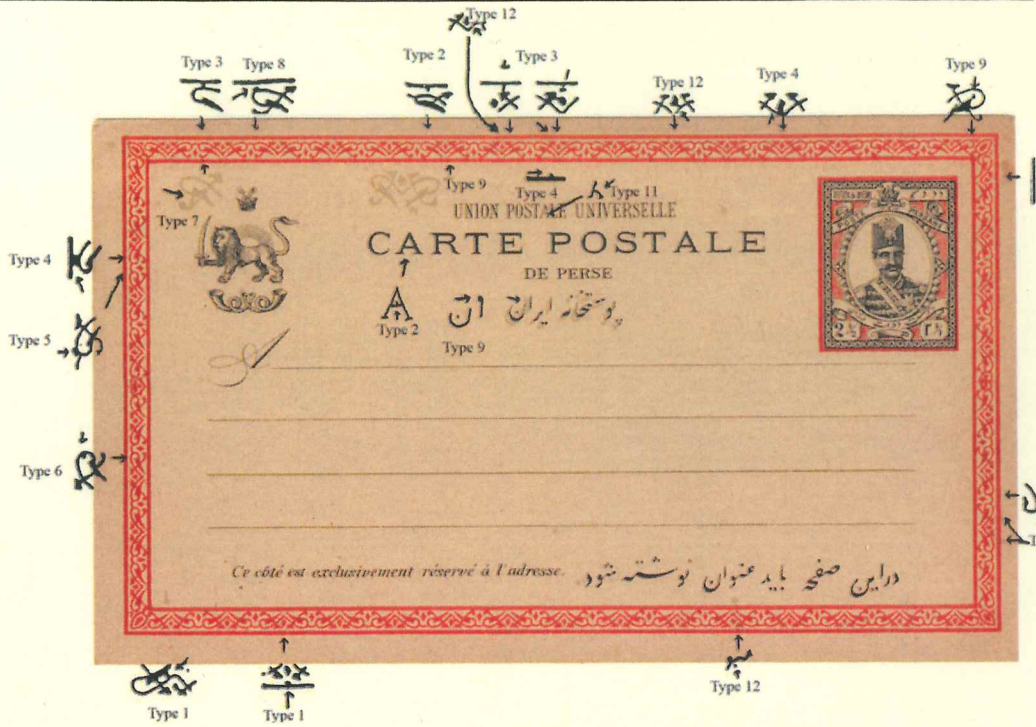 Type 12
Type 3 Type 8 Type 2 Type 3 Type 12 Type 4 Type 9
Type 9 Type 4 Type 11
Type 7
UNION POSTALE UNIVERSELLE
CARTE POSTALE
DE PERSE
پوستخانه ایران
2½ ۲½
Type 4
Type 5
Type 6
A
Type 2
ان
Type 9
Ce côté est exclusivement réservé à l'adresse.
دراین صفحه باید عنوان نوشته شود
Type 1 Type 1 Type 12